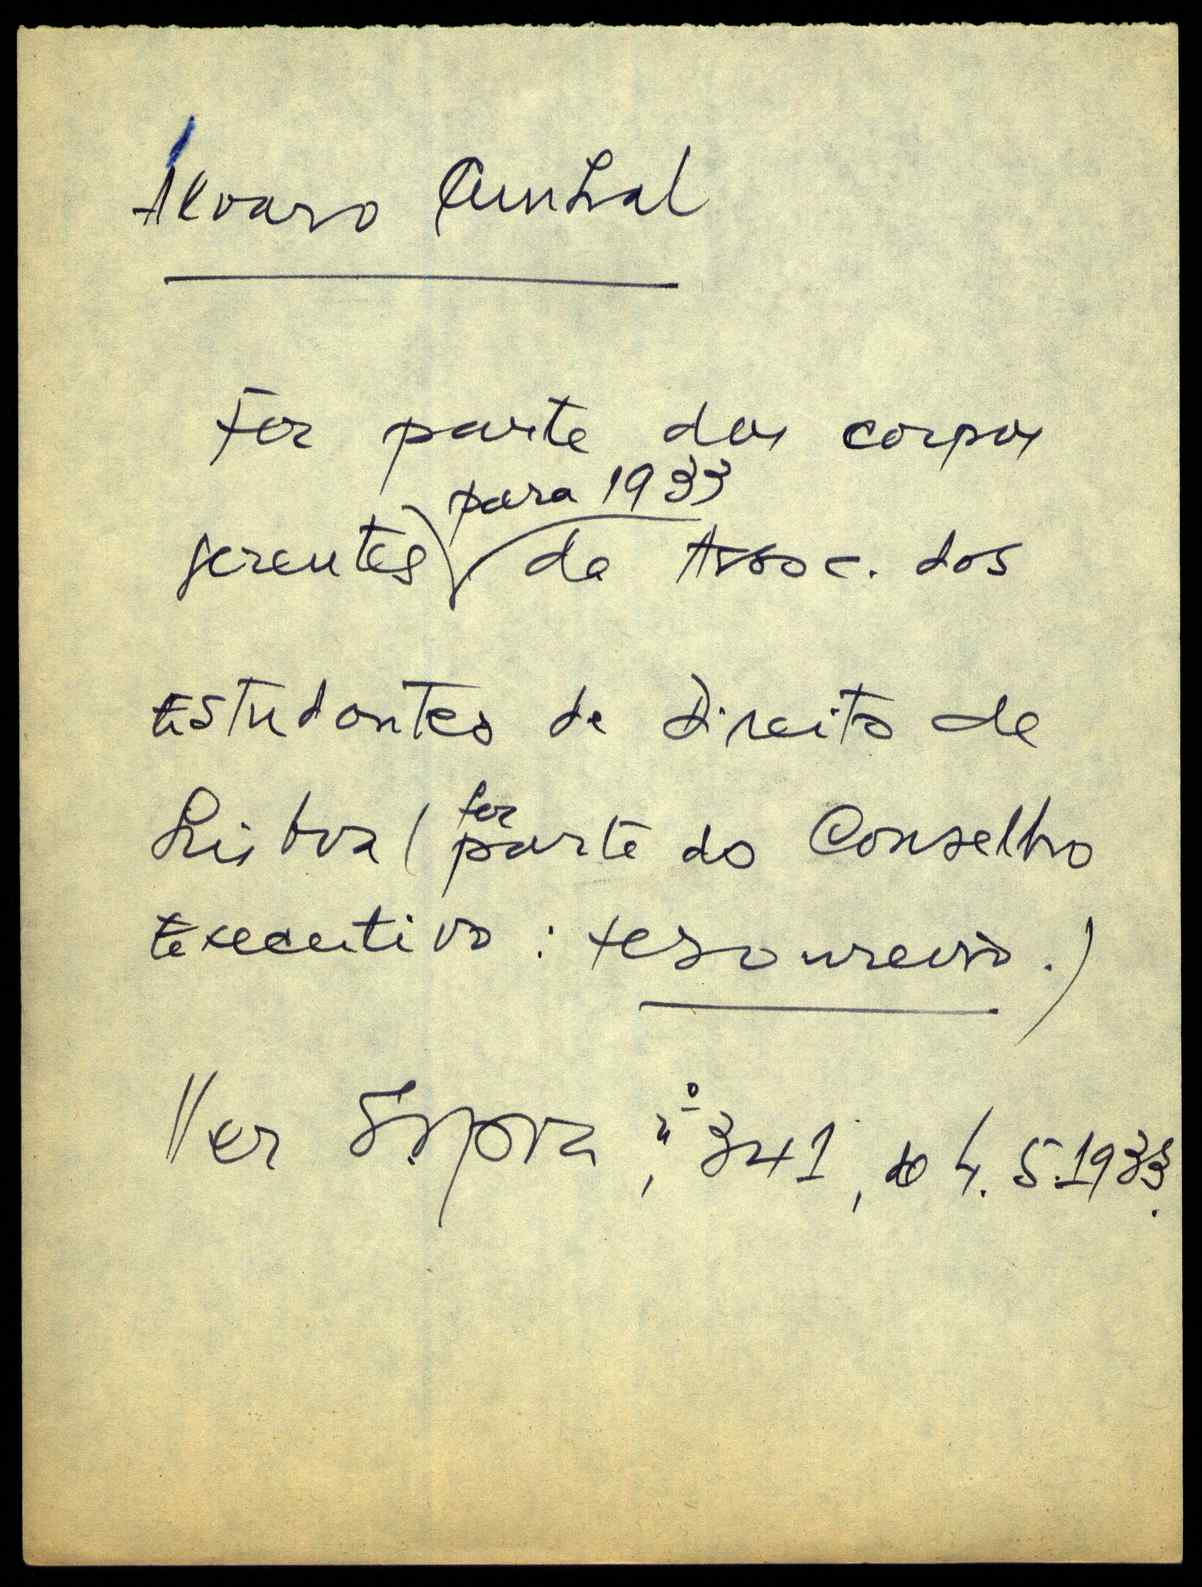 Álvaro Cunhal
Fez parte dos corpos
para 1933
gerentes da Assoc. dos
Estudantes de Direito de
Lisboa (fez parte do Conselho
Executivo: tesoureiro.)
Ver, nº 341, de 4.5.1933.